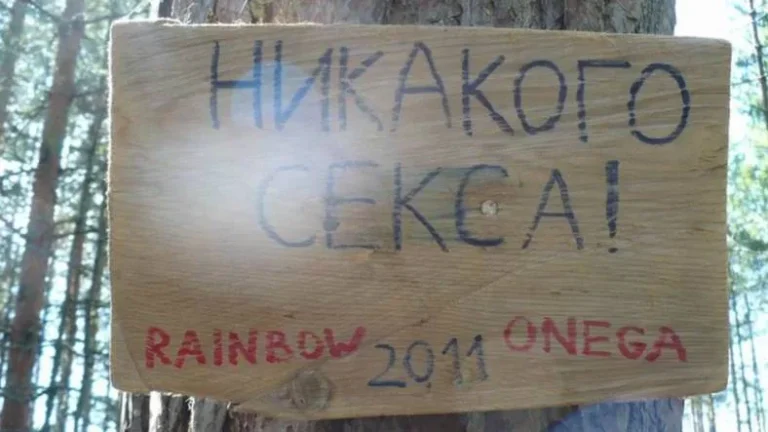 НИКАКОГО
СЕКСА!
RAINBOW 2011 ONEGA